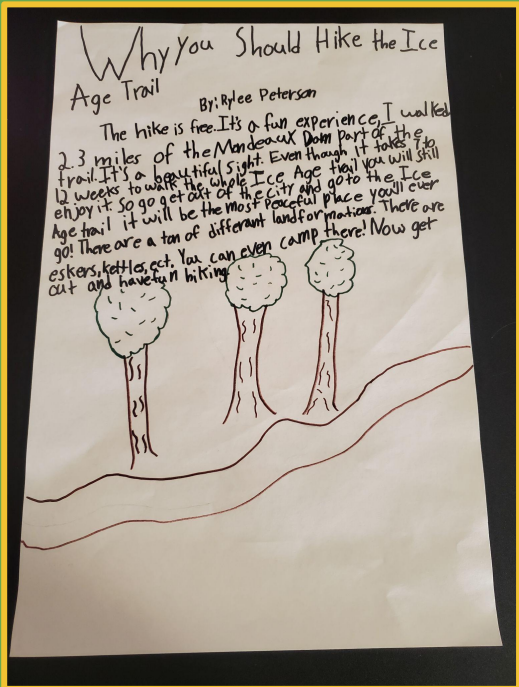 Why You Should Hike the Ice
Age Trail
By: Rylee Peterson
The hike is free. It's a fun experience, I walked
2.3 miles of the Mondeaux Dam part of the
trail. It's a beautiful sight. Even though it takes 7 to
12 weeks to walk the whole Ice Age trail you will still
enjoy it. So go get out of the city and go to the Ice
Age trail it will be the most peaceful place you'll ever
go! There are a ton of different landformations. There are
eskers, kettles, ect. You can even camp there! Now get
out and have fun hiking